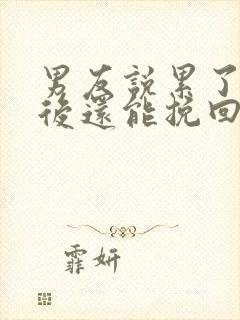 男友說累了
後還能挽回
霏妍